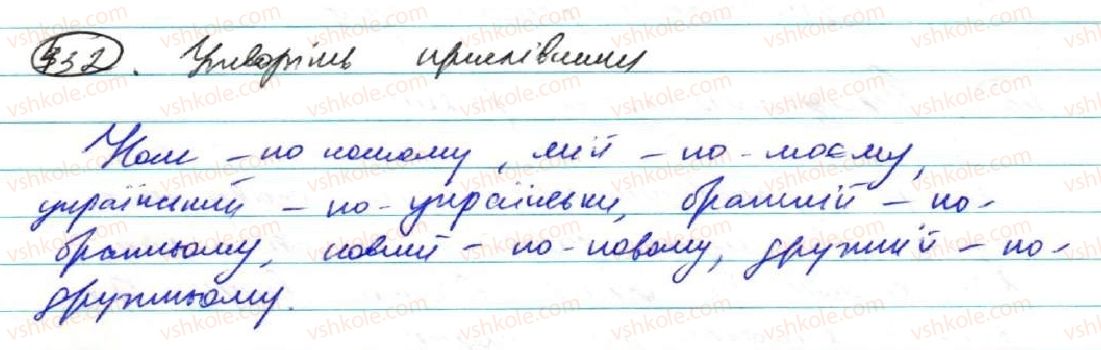 332. Утворіть прислівники
Наш – по нашому, мій – по-моєму,
український – по-українськи, братній – по-
братньому, новий – по-новому, дружній – по-
дружньому.